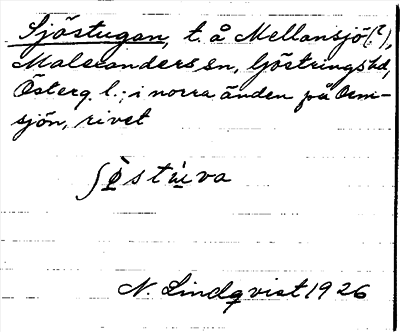 Sjöstugan, t. å Mellansjö(?),
Malexanders sn, Göstringshd,
Österg. l.; i norra änden på Örn-
sjön, rivet
ʃö̀stu̇va
N. Lindqvist 1926